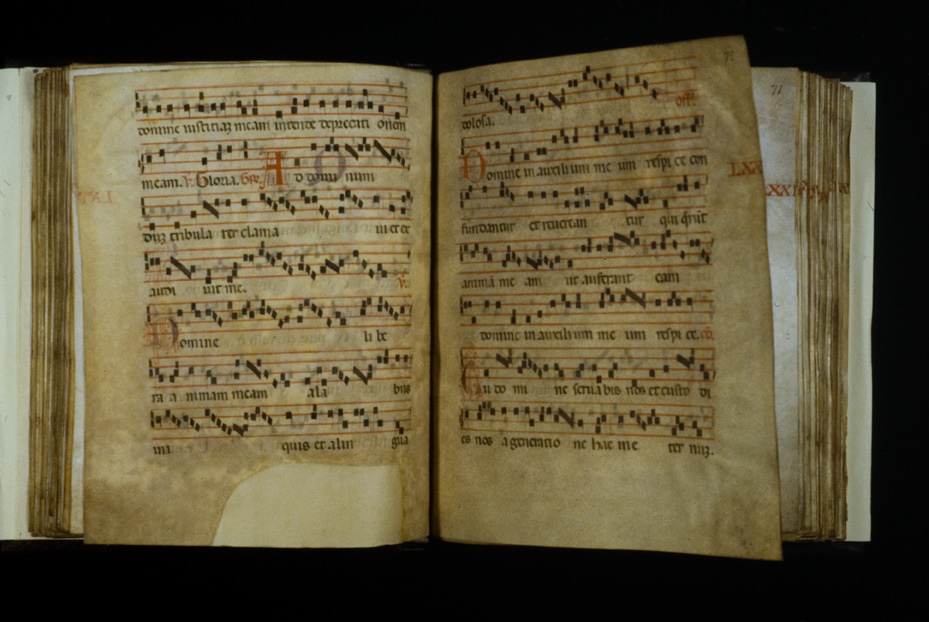 domine iusticiam meam intende deprecati onem
meam. V. Gloria. Gr. A d domi num
dum tribula rer clama ui et ex
audi uit me. V.
Domine li be
ra a nimam meam a la biis
ini quis et a lin gua
dolosa. off.
Domine in auxili um me um respi ce con
fundantur et reuerean tur qui querunt
animam me am ut auferant eam
domine in auxili um me um respi ce. co.
u do mi ne serua bis nos et custo di
es nos a generatio ne hac in e ter num.
71